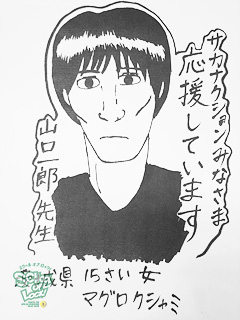 サカナクションみなさま
応援しています
山口一郎先生
茨城県 15さい 女
マグロクシャミ